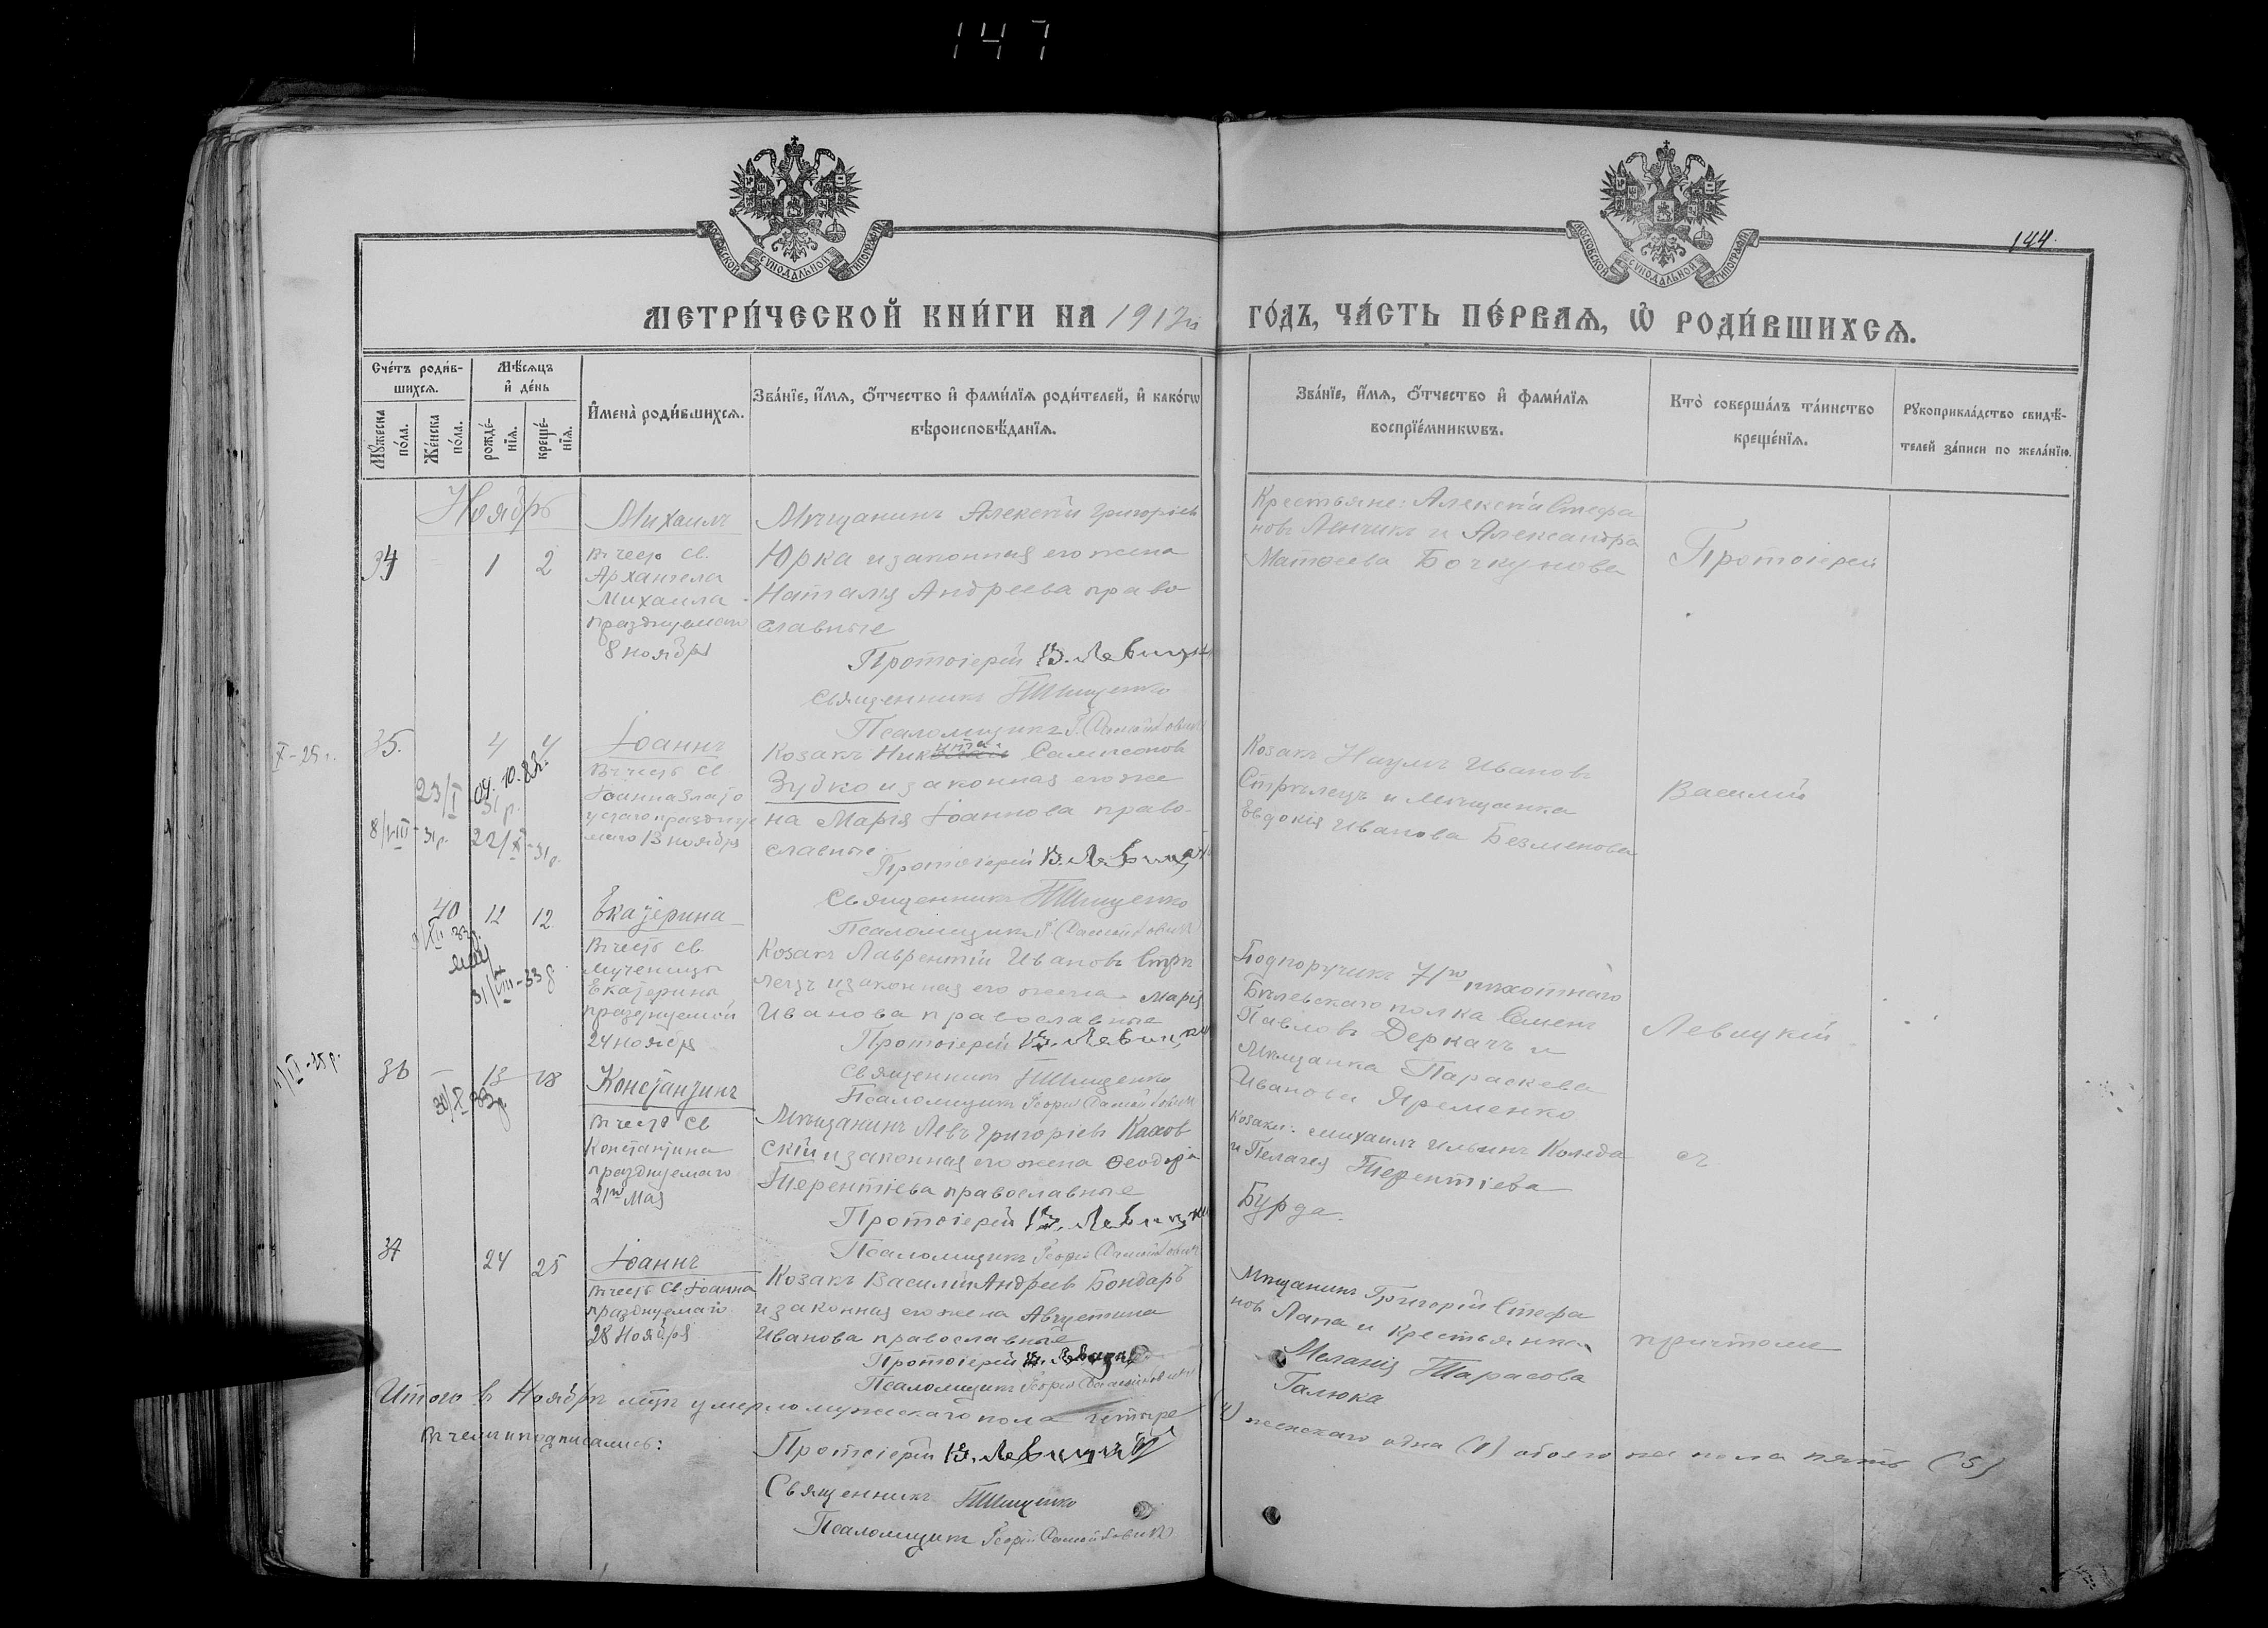 147
МОСКОВСКОЙ СУНОДАЛЬНОЙ ТИПОГРАФІИ
МОСКОВСКОЙ СУНОДАЛЬНОЙ ТИПОГРАФІИ
144.
МЕТРИ́ЧЕСКОЙ КНИ́ГИ НА 1912й ГО́ДЪ, ЧА́СТЬ ПЕ́РВАѦ, Ѽ РОДИ́ВШИХСѦ.
Сче́тъ роди́в-
шихсѧ.
Мꙋ́жеска по́ла.
Же́нска по́ла.
Мѣ́сѧцъ
и҆ де́нь
рожде́-
нїѧ.
креще́-
нїѧ.
И҆мена̀ роди́вшихсѧ.
Зва́нїе, и҆́мѧ, ѻ҆́тчество и҆ фами́лїѧ роди́телей, и҆ како́гѡ
вѣроисповѣ́данїѧ.
Зва́нїе, и҆́мѧ, ѻ҆́тчество и҆ фами́лїѧ
воспрїе́мникѡвъ.
Кто̀ соверша́лъ та́инство
креще́нїѧ.
Рꙋкоприкла́дство свидѣ́-
телей за́писи по жела́нїю.
Ноябрь
34 1 2
Михаилъ
въ честь св.
Архангела
Михаила
празднуемаго
8 ноября
Мѣщанинъ Алексѣй Григорьевъ
Юрка и законная его жена
Наталія Андреева право
славные
Протоіерей В. Левицкій
Священникъ
Псаломщикъ
Крестьяне: Алексѣй Стефа
новъ Ленчикъ и Александра
Матѳеева Бочкунова
Протоіерей
35. 4 4
Іоаннъ
Въ честь св.
Іоанна Злато
устаго праздну
маго 13 ноября
Козакъ Никита Сампсоновъ
Зубко и законная его же
на Марія Іоаннова право-
славные
Протоіерей В. Левицкій
Священникъ
Псаломщикъ
Козакъ Наумъ Ивановъ
Стрѣлецъ и мѣщанка
Евдокія Иванова Безменова
Василій
X-25 г.
23/I
31 р.
8/VIII-31р.
22/X-31р.
40 12 12
Екатерина
въ честь св.
мученицы
Екатерины
празднуемой
24 ноября
Козакъ Лаврентій Ивановъ Стрѣ
лецъ и законная его жена Марія
Иванова православные
Протоіерей В. Левицкій
Священникъ
Псаломщикъ
Подпоручикъ 71го пѣхотнаго
Бѣлевскаго полка Семенъ
Павловъ Деркачъ и
Мѣщанка Параскева
Иванова Яременко
Левицкій
31/VIII-33
36 – 13 18
Константинъ
въ честь св
Константина
празднуемаго
21го Мая
Мѣщанинъ Левъ Григорьевъ Кахов
скій и законная его жена Ѳеодора
Терентіева православные
Протоіерей В. Левицкій
Псаломщикъ
Козаки: Михаилъ Ильинъ Коляда
и Пелагея Терентіева
Бурда.
съ
37 24 25
Іоаннъ
въ честь Св. Іоанна
празднуемаго
28 Ноября
Козакъ Василій Андреевъ Бондарь
и законная его жена Августина
Иванова православные
Протоіерей В. Левицкій
Псаломщикъ
Мѣщанинъ Григорій Стефа
новъ Лапа и крестьянка
Меланія Тарасова
Галюка
причтомъ
Итого въ Ноябрѣ мцѣ умерло мужескаго пола четыре (4) женскаго одна (1) обоего же пола пять (5)
Въ чемъ и подписались:
Протоіерей В. Левицкій
Священникъ
Псаломщикъ